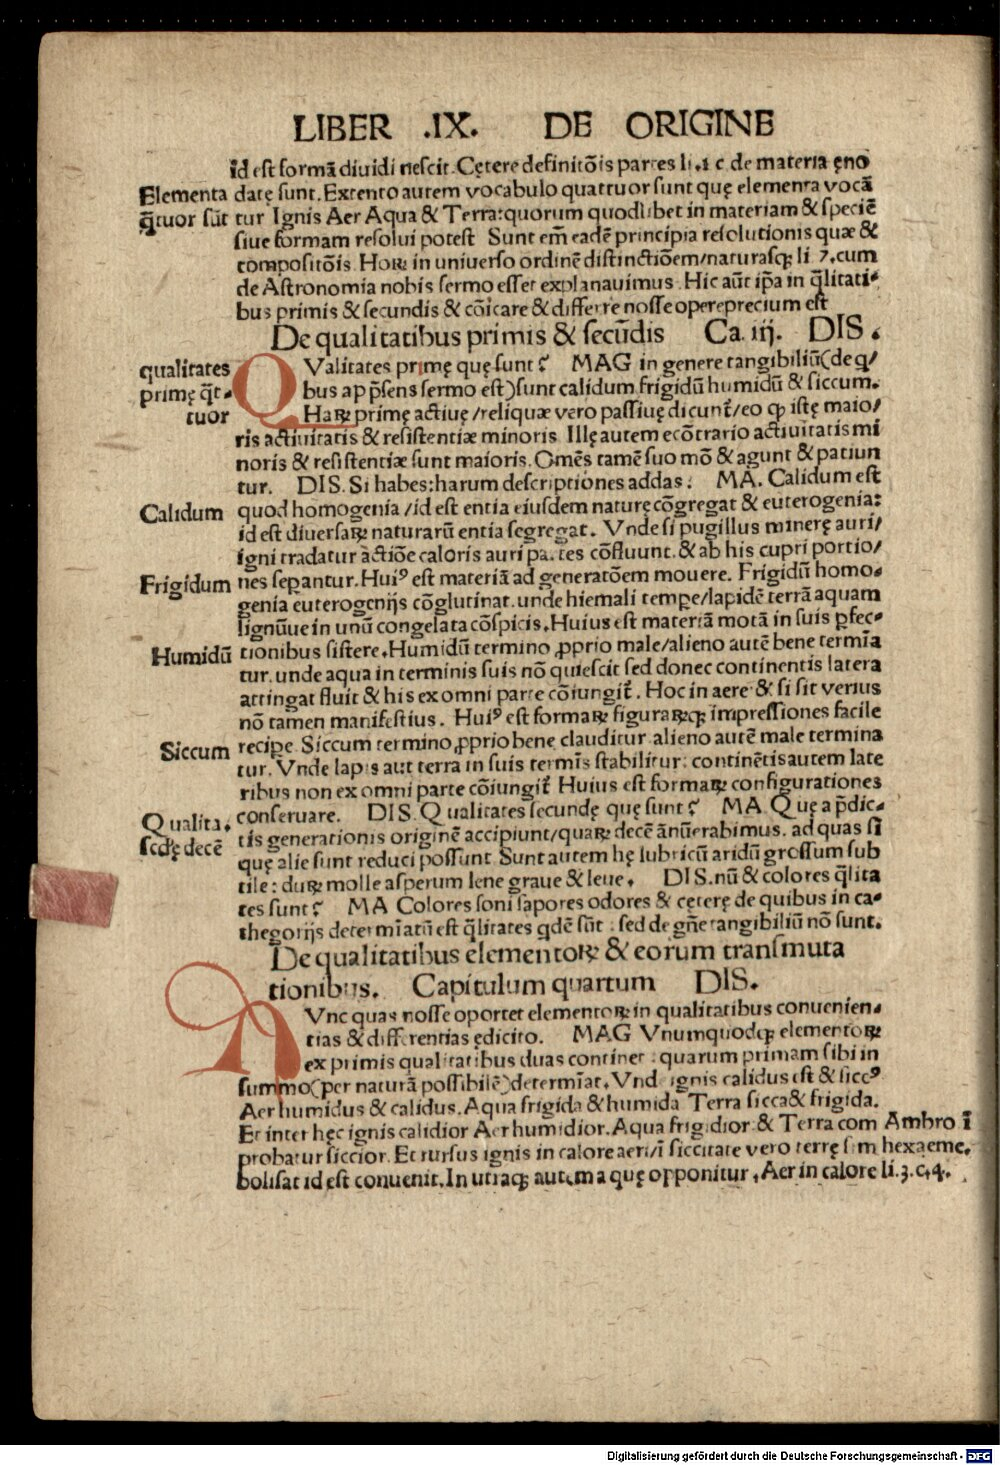 LIBER .IX. DE ORIGINE
id est formā diuidi nescit. Cętere definitōis partes li.1 c de materia ęno
Elementa
q̄tuor sūt
datę sunt. Extento autem vocabulo quattuor sunt quę elementa vocā
tur Ignis Aer Aqua & Terra: quorum quodlibet in materiam & speciē
siue formam resolui potest Sunt em̄ eadē principia resolutionis quæ &
compositōis. Hoꝝ in vniuerso ordinē distinctiōem/naturasqꝫ li 7. cum
de Astronomia nobis sermo esset explanauimus. Hic aūt ip̄a in q̄litati-
bus primis & secundis & cōicare & differre nosse opereprecium est
De qualitatibus primis & secūdis Ca. iij. DIS.
qualitates
primę q̄t-
tuor
QValitates primę quę sunt? MAG in genere tangibiliū(de q/
bus ap p̄sens sermo est)sunt calidum frigidū humidū & siccum.
Haꝝ primę actiuę/reliquæ vero passiuę dicunt̄/eo ꝙ istę maio/
ris actiuitatis & resistentiæ minoris Illę autem ecōtrario actiuitatis mi
noris & resistentiæ sunt maioris. Omēs tamē suo mō & agunt & patiun
tur. DIS. Si habes: harum descriptiones addas. MA. Calidum est
Calidum
quod homogenia/id est entia eiusdem naturę cōgregat & euterogenia:
id est diuersaꝝ naturarū entia segregat. Vnde si pugillus minerę auri/
igni tradatur actiōe caloris auri partes cōfluunt. & ab his cupri portio/
Frigidum
nes sepantur. Huiꝰ est materiā ad generatōem mouere. Frigidū homo-
genia euterogenijs cōglutinat. unde hiemali tempe/lapidē terrā aquam
lignūue in unū congelata cōspicis. Huius est materiā motā in suis ꝑfec-
Humidū
tionibus sistere. Humidū termino ꝓprio male/alieno autē bene termīa
tur. unde aqua in terminis suis nō quiescit sed donec continentis latera
attingat fluit & his ex omni parte cōiungit̄. Hoc in aere & si sit verius
nō tamen manifestius. Huiꝰ est formaꝝ figuraꝝqꝫ impressiones facile
Siccum
recipe. Siccum termino ꝓprio bene clauditur alieno autē male termina
tur. Vnde lapis aut terra in suis termīs stabilitur: continētis autem late
ribus non ex omni parte cōiungit̄ Huius est formaꝝ configurationes
Qualita.
scd̄ę decē
conseruare. DIS. Qualitates secundę quę sunt? MA Quę a p̄dic-
tis generationis originē accipiunt/quaꝝ decē ānūerabimus. ad quas si
quę alie sunt reduci possunt Sunt autem hę lubricū aridū grossum sub
tile: duꝝ molle asperum lene graue & leue. DIS. nū & colores q̄lita
tes sunt? MA Colores soni sapores odores & cęterę de quibus in ca-
thegorijs determīatū est q̄litates qdē sūt: sed de gn̄e tangibiliū nō sunt.
De qualitatibus elementoꝝ & eorum transmuta
tionibus. Capitulum quartum DIS.
NVnc quas nosse oportet elementoꝝ in qualitatibus conuenien-
tias & differentias ędicito. MAG Vnumquodqꝫ elementoꝝ
ex primis qualitatibus duas continet: quarum primam sibi in
summo(per naturā possibilē)determīat. Vnd ignis calidus est & siccꝰ
Aer humidus & calidus. Aqua frigida & humida Terra sicca & frigida.
Et inter hęc ignis calidior Aer humidior. Aqua frigidior & Terra com
probatur siccior. Et rursus ignis in calore aeri/ī siccitate vero terrę sim
bolisat id est conuenit. In utraqꝫ autem aquę opponitur. Aer in calore
Ambro ī
hexaeme.
li.3.c.4.